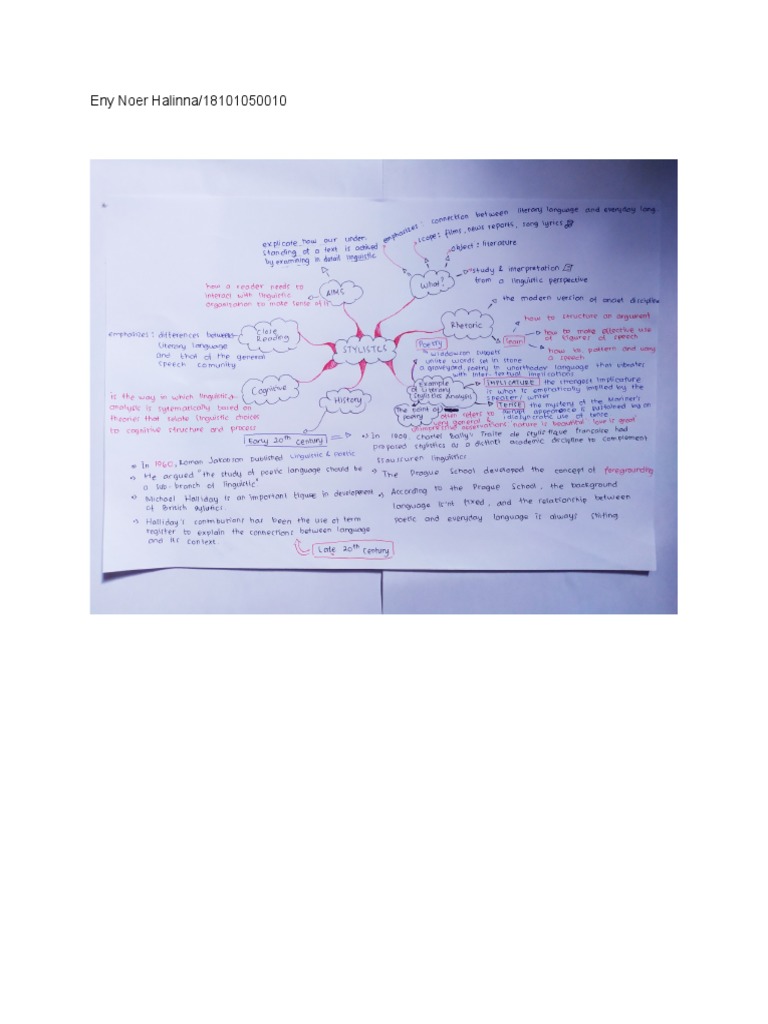 Eny Noer Halinna/18101050010
emphasizes: connection between literary language and everyday lang.
scope: films, news reports, song lyrics
object: literature
explicate how our under
standing of a text is achived
by examining in detail linguistic
What?
study & interpretation
from a linguistic perspective
how a reader needs to
interact with linguistic
organization to make sense of it
AIMS
the modern version of ancient discipline
Rhetoric
how to structure an argument
learn
how to make effective use
of figures of speech
how to pattern and vary
a speech
emphasizes: differences between
literary language
and that of the general
speech comunity
Close
Reading
STYLISTCS
Poetry
Widdowson suggests
unlike words set in stone
a graveyard, poetry in unorthodox language that vibrates
with inter-textual implications
Cognitive
History
Example
of Literary
Stylistics Analysis
IMPLICATURE the strongest implicature
is what is emphatically implied by the
speaker/writer
TENSE the mystery of the Mariner's
abrupt appearance is sustained by an
idiosyncratic use of tense
The point of
poetry
often refers to
very general &
observations nature is beautiful love is great
is the way in which linguistic
analysis is systematically based on
theories that relate linguistic choices
to cognitive structure and process
Early 20th century
In 1909, Charles Bally's Traite de stylistique francaise had
proposed stylistics as a distinct academic discipline to complement
linguistics
In 1960, Roman Jakobson published Linguistic & poetic
He argued "the study of poetic language should be
a sub-branch of linguistic"
The Prague School developed the concept of foregrounding
Michael Halliday is an important figure in development
of British
According to the Prague School, the background
language isn't fixed, and the relationship between
poetic and everyday language is always shifting
Halliday's contributions has been the use of term
register to explain the connections between language
and its context
Late 20th century